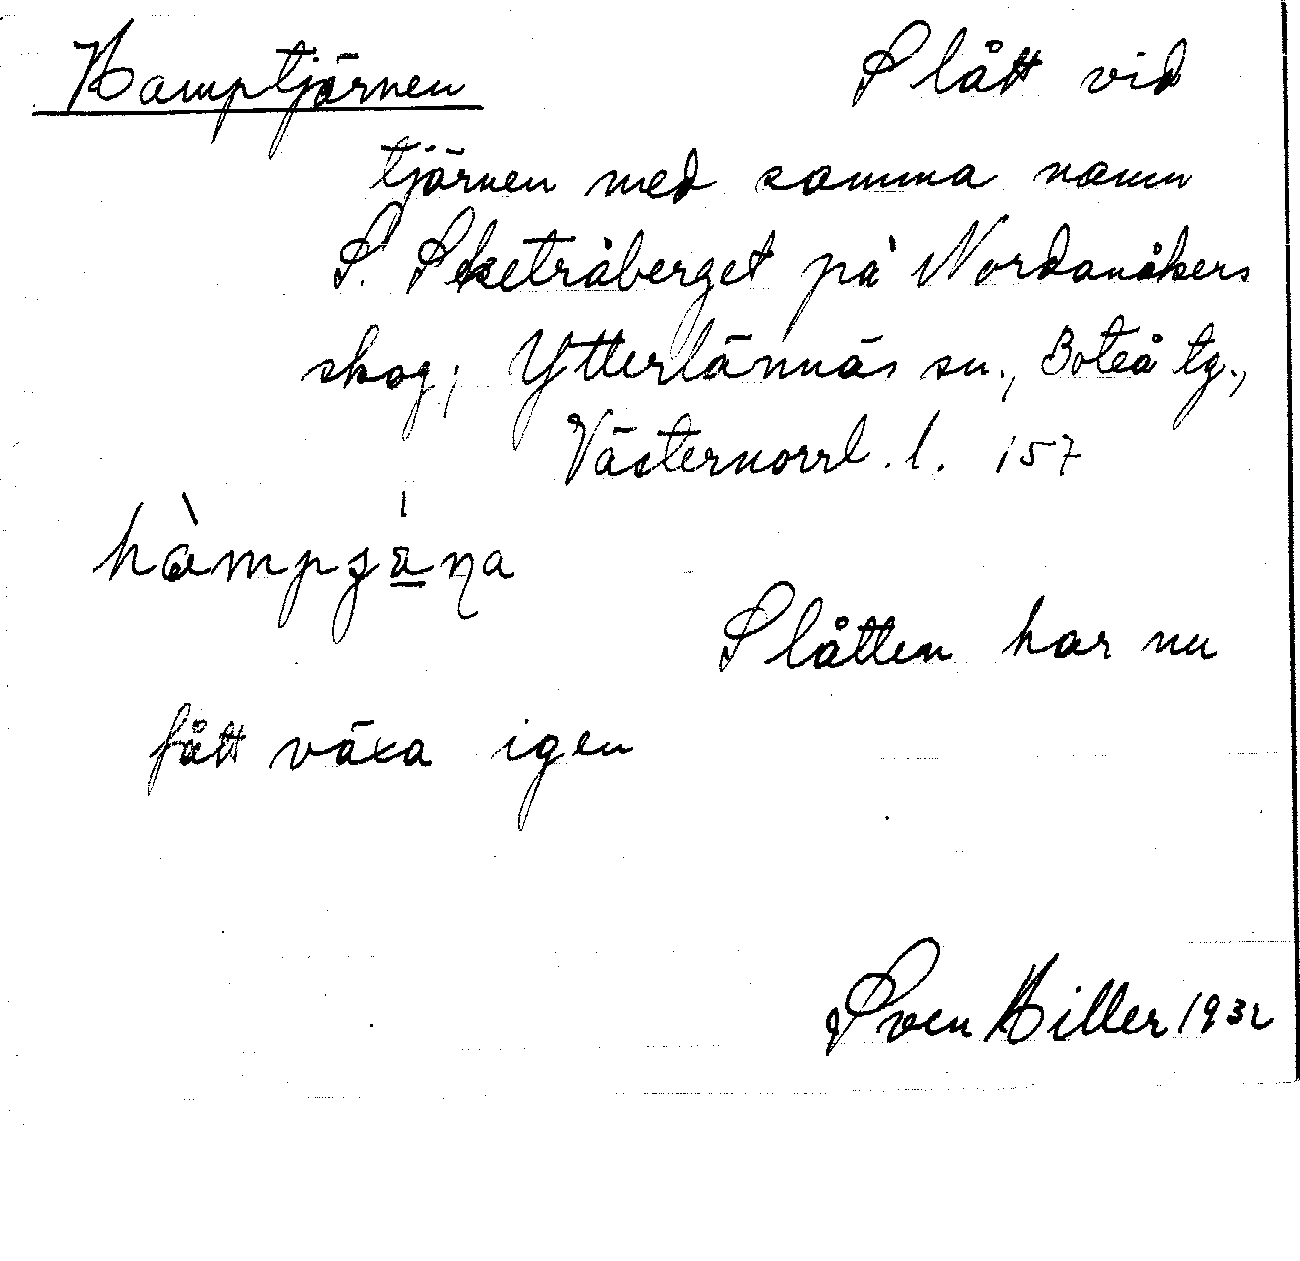 Hamptjärnen Slått vid
tjärnen med samma namn
S. Sketråberget på Nordanåkers
skog, Ytterlännäs sn., Boteå tg.,
Västernorrl. l. 157
Slåtten har nu
fått växa igen
Sven Hiller 1932